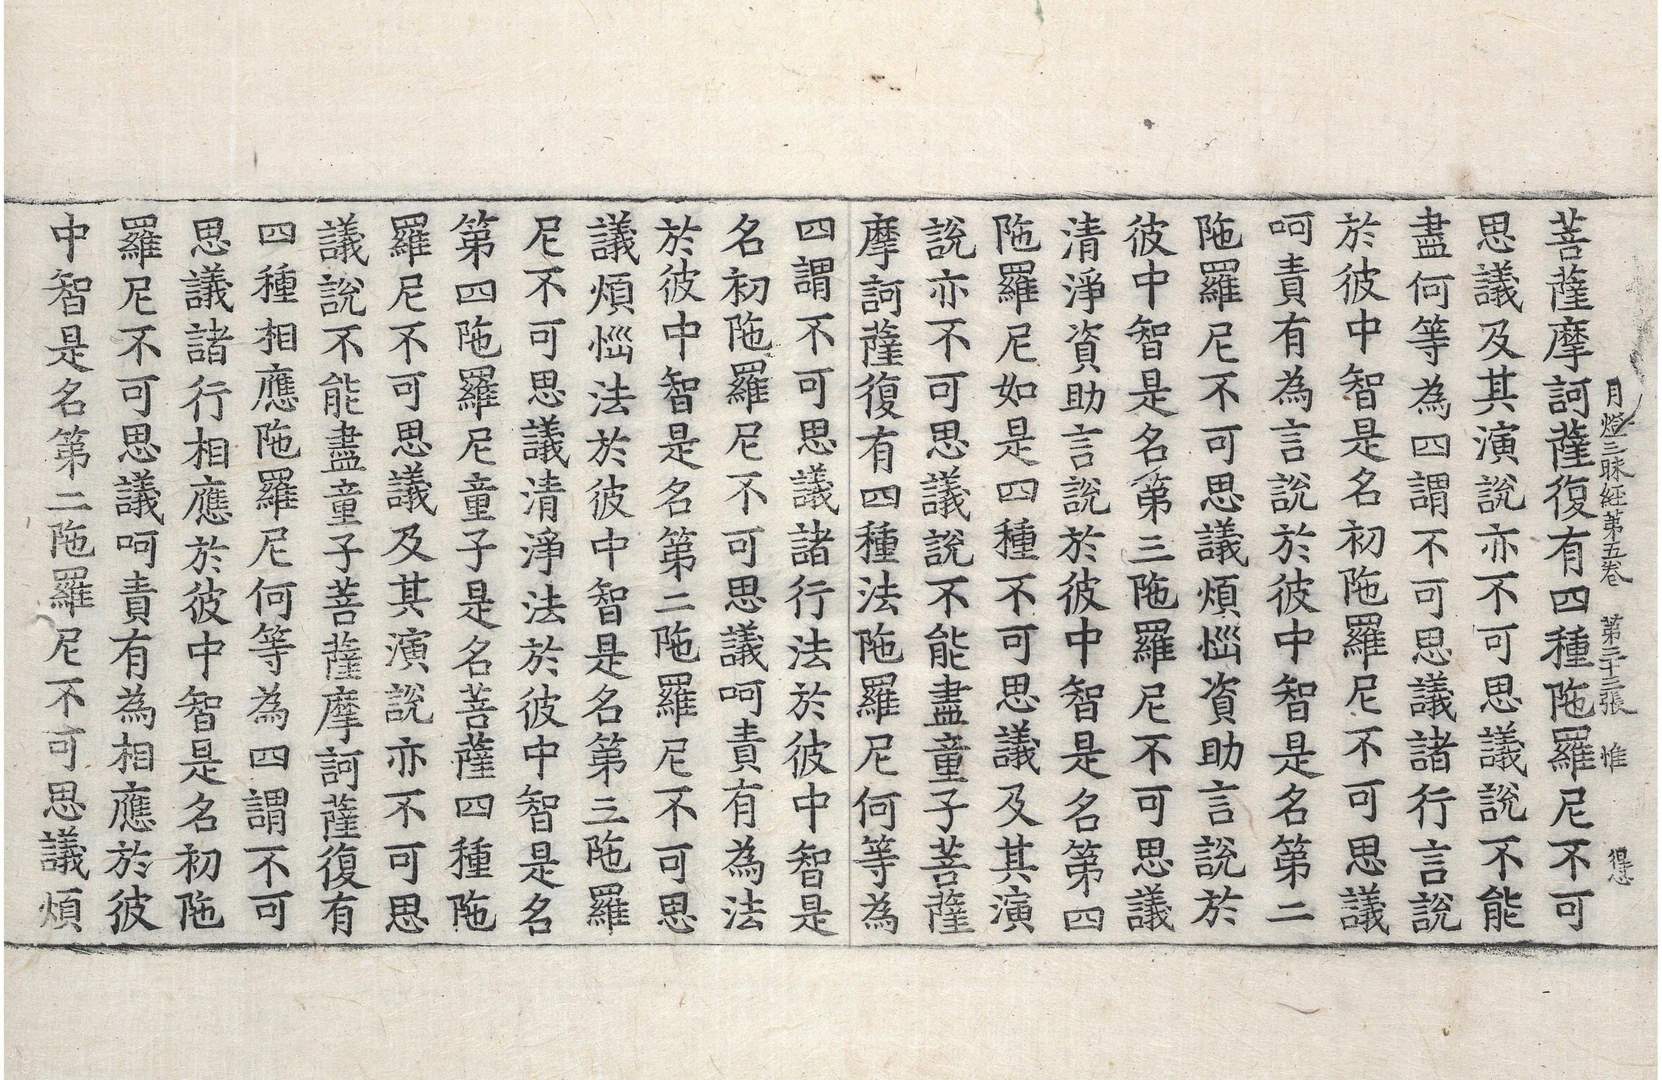 月燈三昧經第五卷 第三十三張 惟
菩薩摩訶薩復有四種陁羅尼不可
思議及其演說亦不可思議說不能
盡何等為四謂不可思議諸行言說
於彼中智是名初陁羅尼不可思議
呵責有為言說於彼中智是名第二
陁羅尼不可思議煩惱資助言說於
彼中智是名第三陁羅尼不可思議
清淨資助言說於彼中智是名第四
陁羅尼如是四種不可思議及其演
說亦不可思議說不能盡童子菩薩
摩訶薩復有四種法陁羅尼何等為
四謂不可思議諸行法於彼中智是
名初陁羅尼不可思議呵責有為法
於彼中智是名第二陁羅尼不可思
議煩惱法於彼中智是名第三陁羅
尼不可思議清淨法於彼中智是名
第四陁羅尼童子是名菩薩四種陁
羅尼不可思議及其演說亦不可思
議說不能盡童子菩薩摩訶薩復有
四種相應陁羅尼何等為四謂不可
思議諸行相應於彼中智是名初陁
羅尼不可思議呵責有為相應於彼
中智是名第二陁羅尼不可思議煩